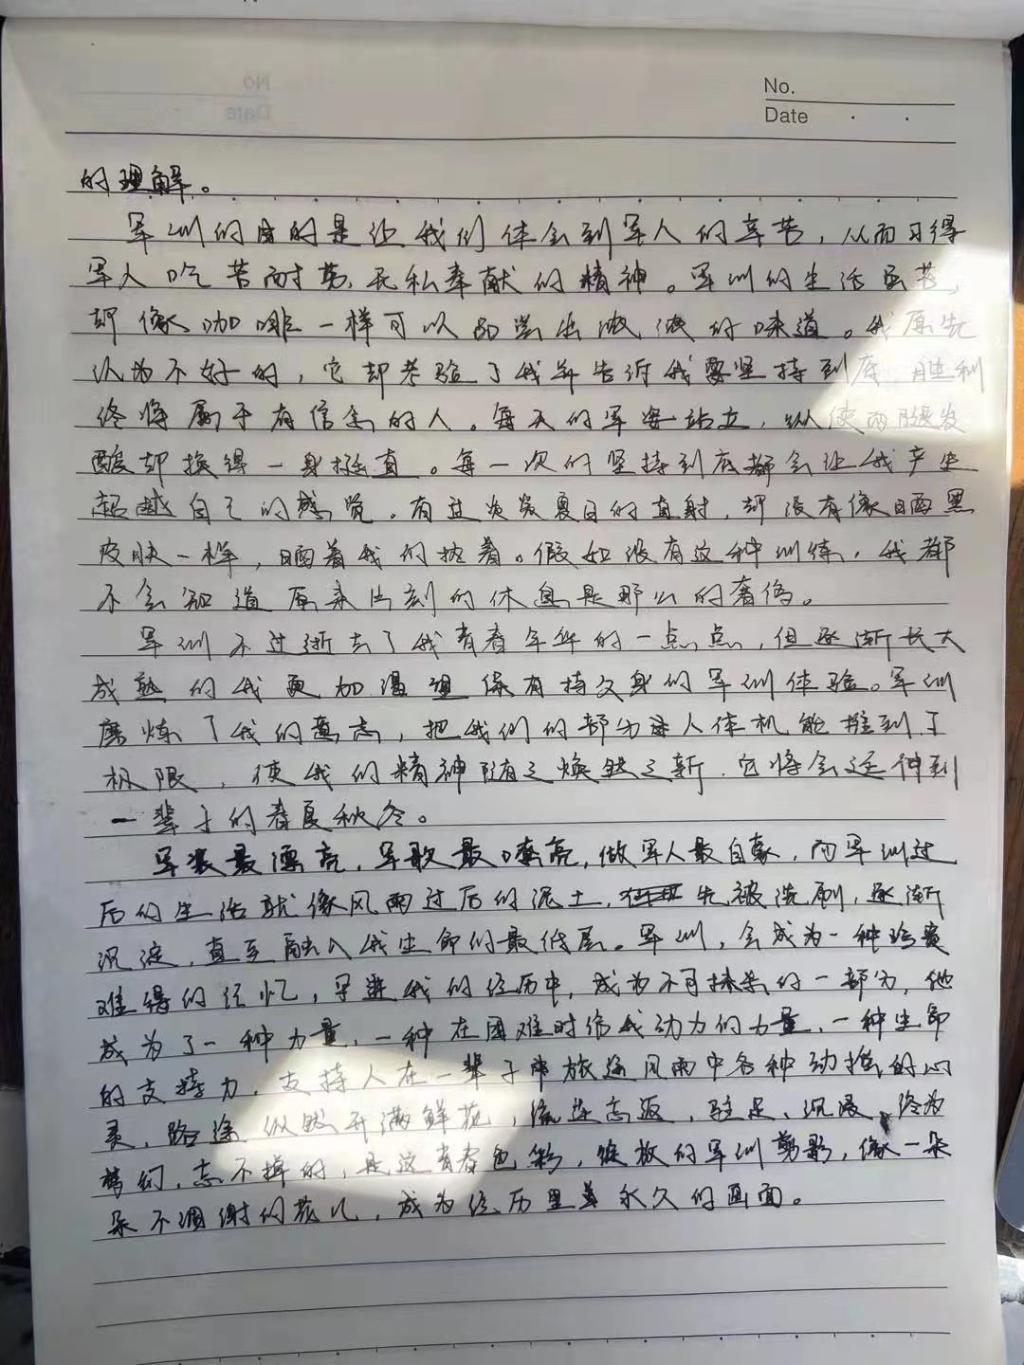 No.
Date
的理解。
军训的目的是让我们体会到军人的辛苦，从而习得
军人吃苦耐劳，无私奉献的精神。军训的生活虽苦，
却像咖啡一样可以品尝出微微的味道。我原先
认为不好的，它却考验了我并告诉我要坚持到底，胜利
终将属于有信念的人。每天的军姿站立，纵使两腿发
酸却换得一身挺直。每一次的坚持到底都会让我产生
超越自己的感觉。有益炎炎夏日的直射，却没有像晒黑
皮肤一样，晒着我的执着。假如没有这种训练，我都
不会知道原来片刻的休息是那么的奢侈。
军训不过逝去了我青春年华的一点点，但逐渐长大
成熟的我更加温 保有持久身的军训体验。军训
磨炼了我的意志，把我们的部为 人体机能推到了
极限，使我的精神随之焕然之新，它将会延伸到
一辈子的春夏秋冬。
军装最漂亮，军歌最嘹亮，做军人最自豪，而军训过
后的生活就像风雨过后的泥土，先被洗刷，逐渐
沉淀，直至融入我生命的最低层。军训，会成为一种珍贵
难得的经忆， 进我的经历中，成为不可抹杀的一部分，他
成为了一种力量，一种在困难时给我动力的力量，一种生命
的支持力，支持人在一辈子 旅途风雨中各种动摇的心
灵，路途纵然开满鲜花，流连忘返，驻足、沉浸、终为
梦幻，忘不掉的，是这青春色彩，绽放的军训剪影，像一朵
朵不凋谢的花儿，成为经历里 永久的画面。